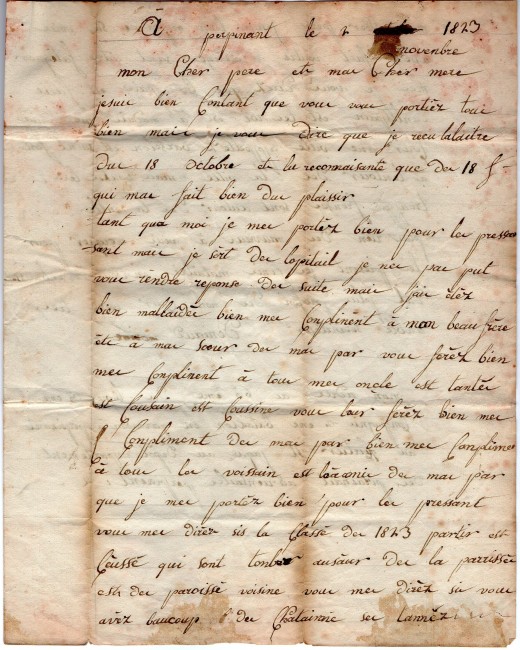 À perpinant le 2 1823
novenbre
mon Cher pere et ma Cher mere
je suie bien Contant que vous vous portiez tous
bien mais je vous dire que je reçu la laitre
due 18 octobre et la reconnaisante que de 18 f
qui ma fait bien du plaissir
tant qua moi je me portez bien pour le pressan
sant mais je sort de lopitail je ne pas put
vous rendre reponse de suite mais jai étéz
bien mallaide bien me Conplinent à mon beau frère
ete à ma sœur de ma par vous ferez bien
me Conplinent à tous me oncle est tantes
est Cousain est Coussine vous lair ferez bien me
Conpliment de ma par bien me Conplime
à tous le voissain est de ma par
que je me portez bien pour le pressant
vous me direz sis la Classe de 1823 partir est
Ceusse qui sont tonber ausaur de la parrisse
est de paroisse voisine vous me direz si vous
avez beaucoup de Chatainne se lannéz